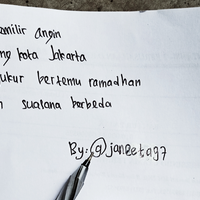 milir angin
kota Jakarta
ukur bertemu ramadhan
suasana berbeda
By: @janeeta97